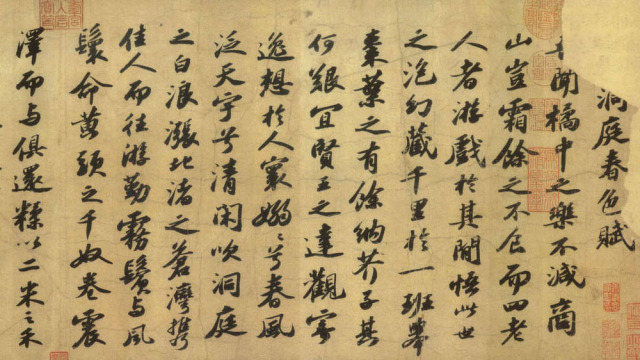 洞庭春色賦
聞橘中之樂不減商
山豈霜餘之不食而四老
人者游戲於其間悟此世
之泡幻藏千里於一班舉
棗葉之有餘納芥子其
何艱宜賢王之達觀寄
逸想於人寰嫋〻兮春風
泛天宇兮清閑吹洞庭
之白浪漲北渚之蒼灣攜
佳人而往游勤霧鬢與風
鬟命黃頭之千奴卷震
澤而與俱還糅以二米之禾